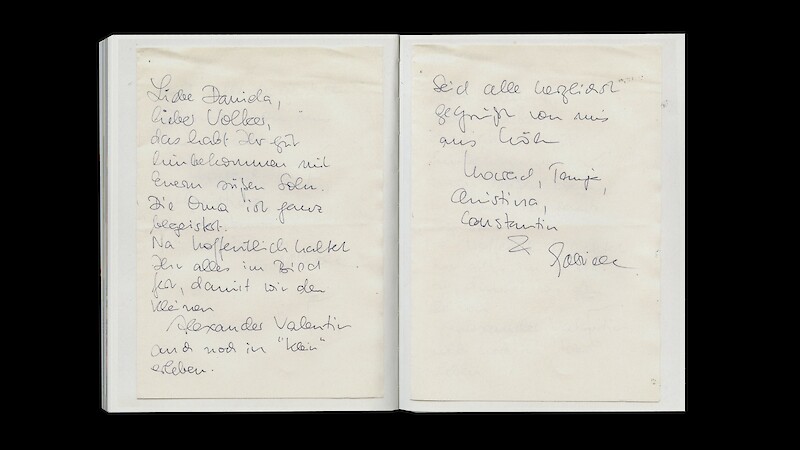 Liebe Daniela,
lieber Volker,
das habt Ihr gut
hinbekommen mit
Euerm süßen Sohn.
Die Oma ist ganz
begeistert.
Na hoffentlich haltet
Ihr alles im Bild
fest, damit wir den
kleinen
Alexander Valentin
auch noch in "klein"
erleben.
Seid alle herzlichst
gegrüßt von uns
aus Köln
Tanja,
Christina,
Constantin
&
Gabriele